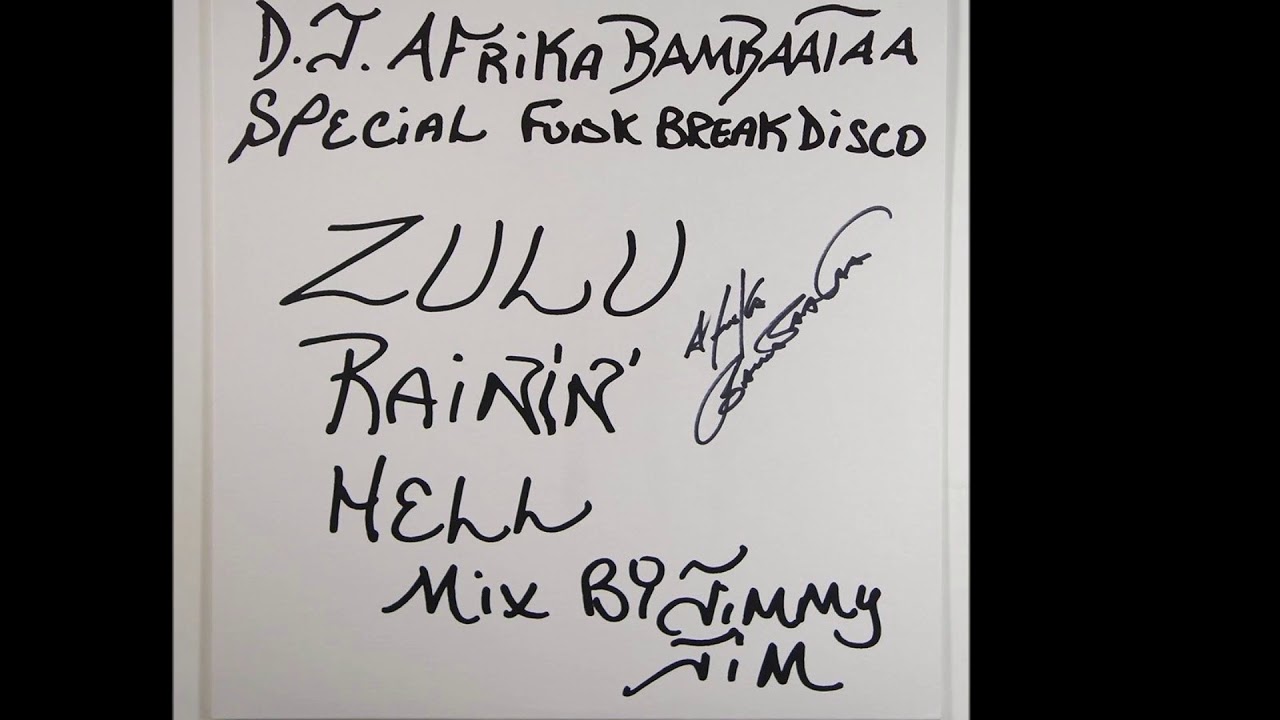 D.J. AFRiKA BAMBAATAA
SPECiAL FUNK BREAK DiSCO
ZULU
RAiNiN'
HELL
Afrika
Bambaataa
Mix BY JiMMy
JiM